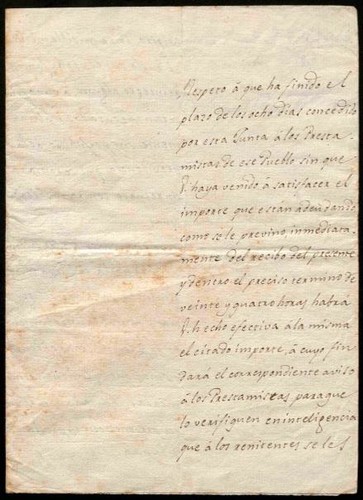 Respeto á que ha finido el
plazo de los ocho dias concedido
por esta Junta á los Presta
mistas de ese Pueblo sin que
V. haya venido á satisfacer el
importe que están adeudando
como se le previno inmediata,
mente del recibo del presente
y dentro el preciso termino de
veinte y quatro horas habrá
V. hecho efectiva á la misma
el citado importe, á cuyo fin
dará el correspondiente aviso
á los Prestamistas para que
lo verifiquen en inteligencia
que á los renitentes se les